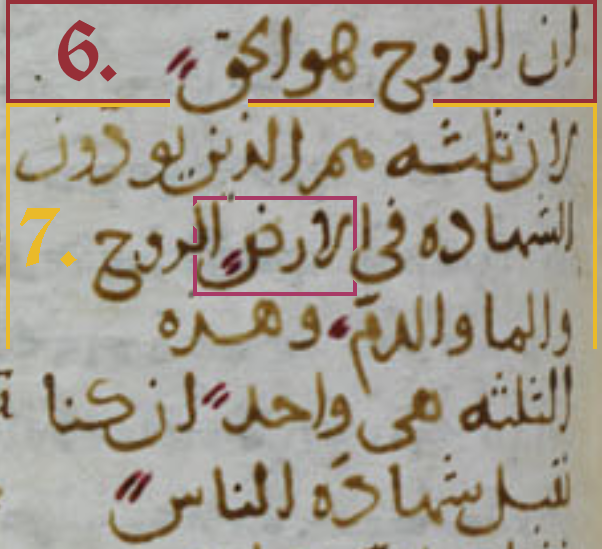 6. ان الروح هو الحق
لان ثلثه هم الذين يودون
7. الشهاده في الارض الروح
والما والدم وهده
الثلثه هى واحد ان كنا
نقبل شهادة الناس